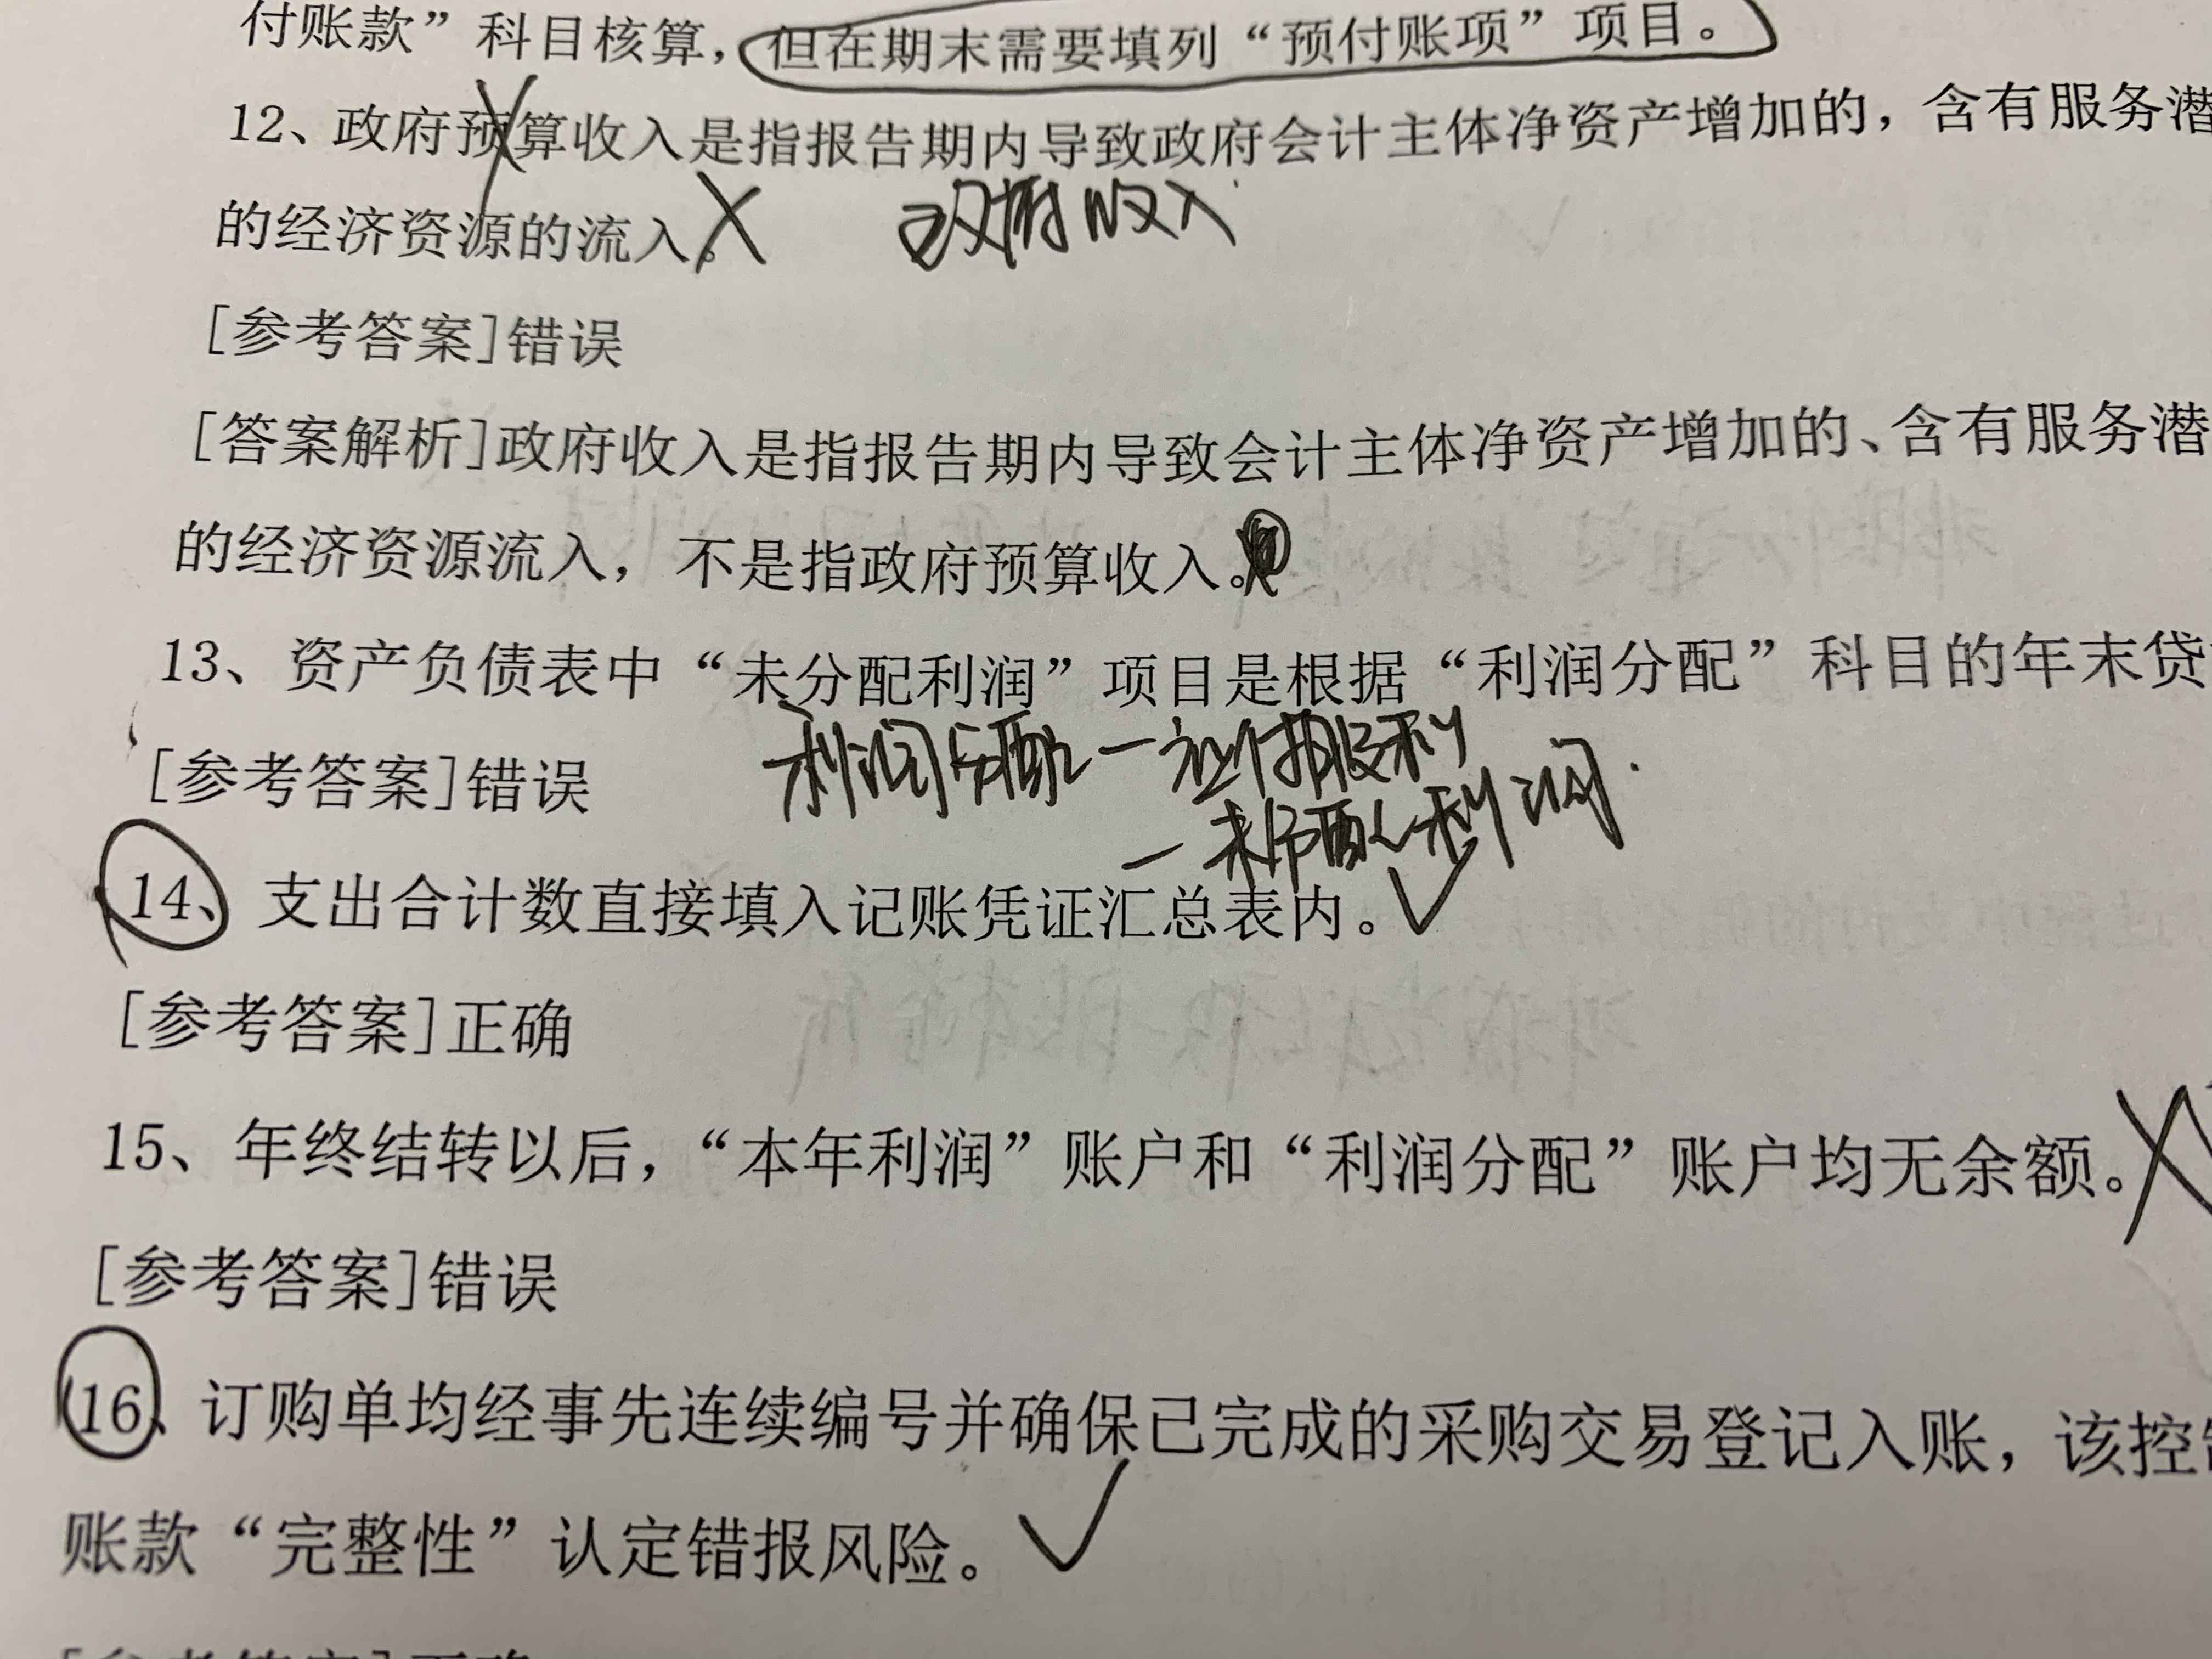 付账款”科目核算，但在期末需要填列“预付账项”项目。
12、政府预算收入是指报告期内导致政府会计主体净资产增加的，含有服务潜
的经济资源的流入。
政府收入
[参考答案]错误
[答案解析]政府收入是指报告期内导致会计主体净资产增加的、含有服务潜
的经济资源流入，不是指政府预算收入。
13、资产负债表中“未分配利润”项目是根据“利润分配”科目的年末贷
利润分配一应付股利
[参考答案]错误
一未分配利润.
14、支出合计数直接填入记账凭证汇总表内。
[参考答案]正确
15、年终结转以后，“本年利润”账户和“利润分配”账户均无余额。
[参考答案]错误
16、订购单均经事先连续编号并确保已完成的采购交易登记入账，该控
账款“完整性”认定错报风险。
[参考答案]正确